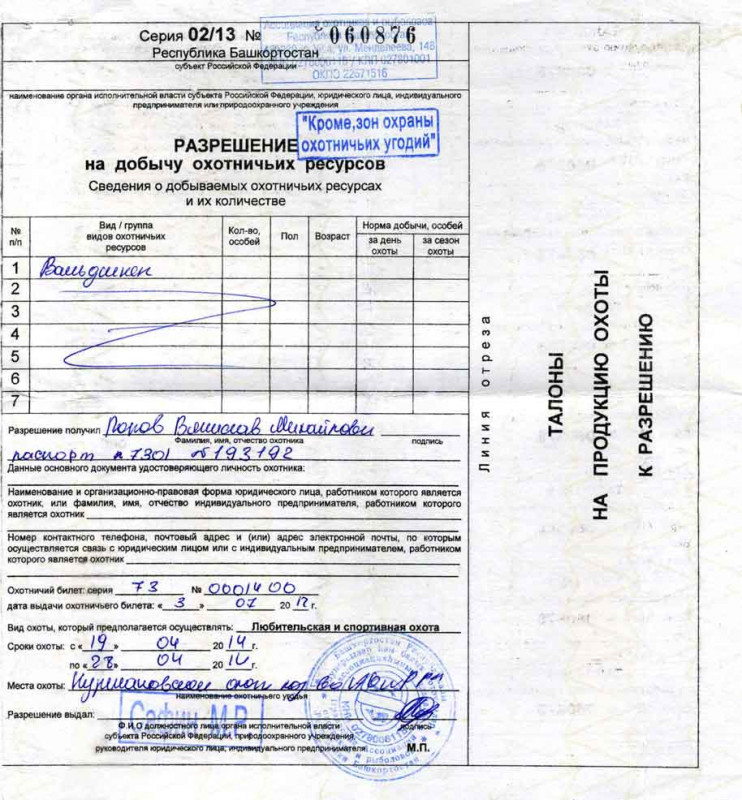 Серия 02/13 № 060876
Республика Башкортостан
субъект Российской Федерации
Ассоциация охотников и рыболовов
ул. Менделеева, 148
КПП 027801001
ОКПО 22671516
наименование органа исполнительной власти субъекта Российской Федерации, юридического лица, индивидуального
предпринимателя или природоохранного учреждения
"Кроме,зон охраны
охотничьих угодий"
РАЗРЕШЕНИЕ
на добычу охотничьих ресурсов
Сведения о добываемых охотничьих ресурсах
и их количестве
№ п/п
Вид / группа видов охотничьих ресурсов
Кол-во, особей
Пол
Возраст
Норма добычи, особей
за день охоты
за сезон охоты
1 Вальдшнеп
2
3
4
5
6
7
Разрешение получил Попов Вячеслав Михайлович
Фамилия, имя, отчество охотника подпись
паспорт 7301 №193192
Данные основного документа удостоверяющего личность охотника:
Наименование и организационно-правовая форма юридического лица, работником которого является
охотник, или фамилия, имя, отчество индивидуального предпринимателя, работником которого
является охотник
Номер контактного телефона, почтовый адрес и (или) адрес электронной почты, по которым
осуществляется связь с юридическим лицом или с индивидуальным предпринимателем, работником
которого является охотник
Охотничий билет: серия 73 № 0001400
дата выдачи охотничьего билета: «3» 07 2012 г.
Вид охоты, который предполагается осуществлять: Любительская и спортивная охота
Сроки охоты: с «19» 04 2014 г.
по «28» 04 2014 г.
Места охоты:
наименование охотничьего угодья
Разрешение выдал: Сафин М.Р.
Ф.И.О должностного лица органа исполнительной власти подпись
субъекта Российской Федерации, природоохранного учреждения,
руководителя юридического лица, индивидуального предпринимателя М.П.
Линия отреза
ТАЛОНЫ
НА ПРОДУКЦИЮ ОХОТЫ
К РАЗРЕШЕНИЮ